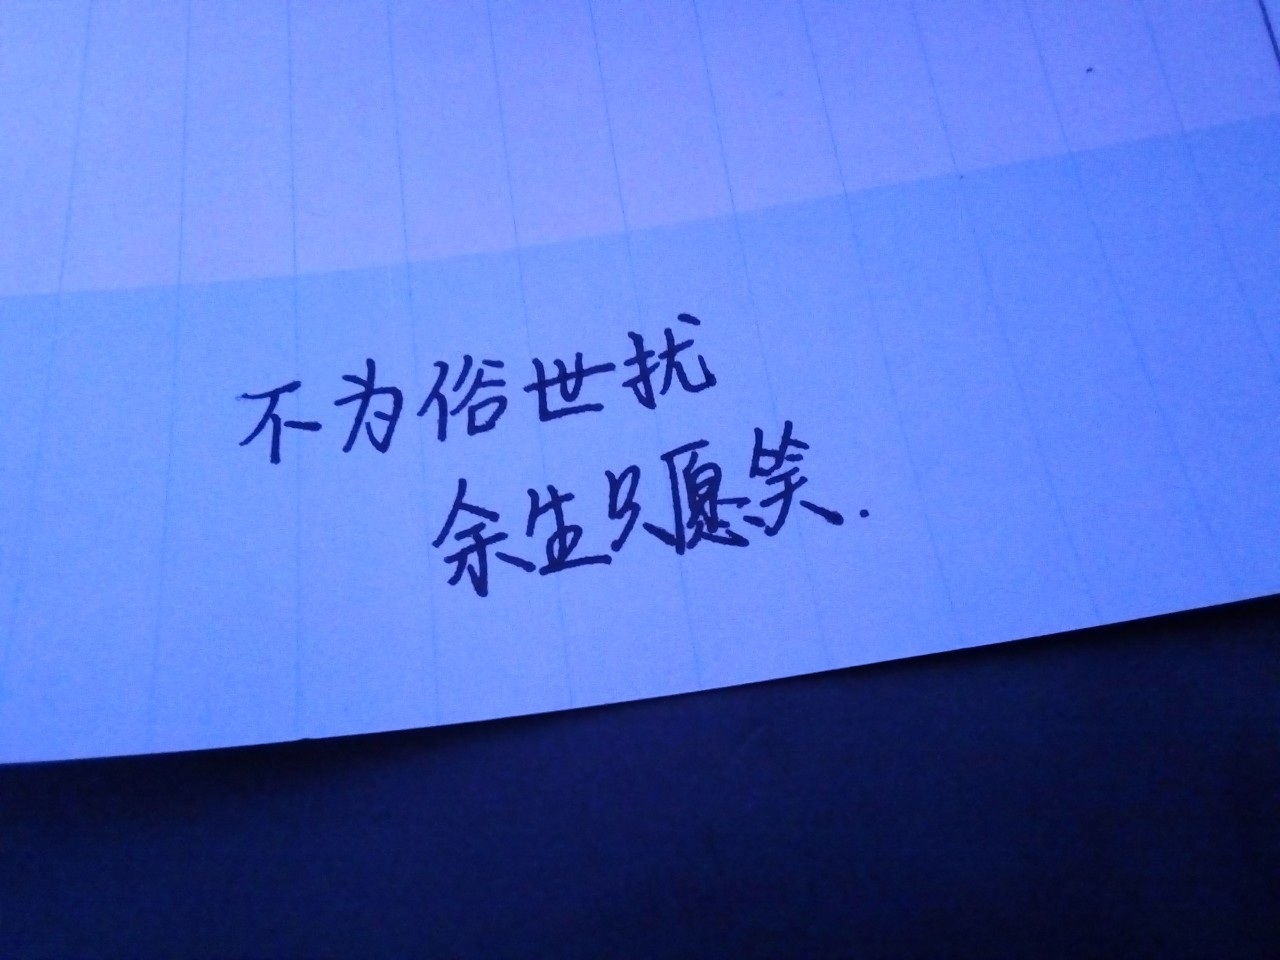 不为俗世扰
余生只愿笑.